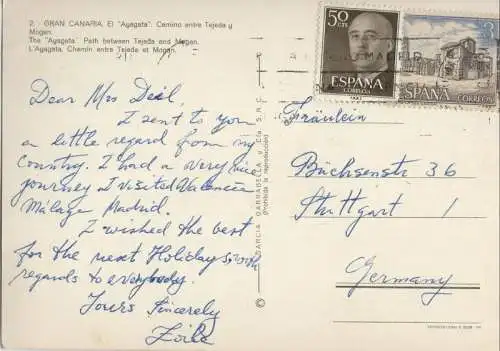 2. - GRAN CANARIA. El "Ayagata". Camino entre Tejeda y
Mogan.
The "Ayagata". Path between Tejeda and Mogan.
L'Ayagata. Chemin entre Tejeda et Mogan.
Dear Mrs
I sent to you
a little regard from my
country. I had a very nice
journey I visited Valencia
Málaga Madrid.
I wished the best
for the next Holidays,
regards to everybody.
Yours Sincerely
GARCIA GARRABELLA y Cía S.R.C.
(Prohibida la reproducción)
50 CTS
ESPAÑA
CORREOS
ESPAÑA
CORREOS
Fräulein
Büchsenstr 36
Stuttgart 1
Germany